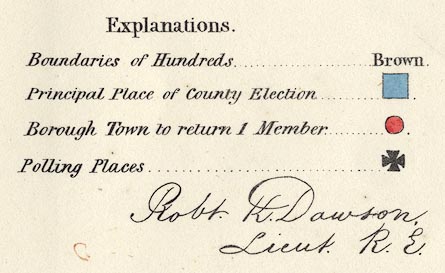 Explanations.
Boundaries of Hundreds.................Brown.
Principal Place of County Election........
Borough Town to return 1 Member..........
Polling Places..............................
Robt. K. Dawson,
Lieut. R. E.